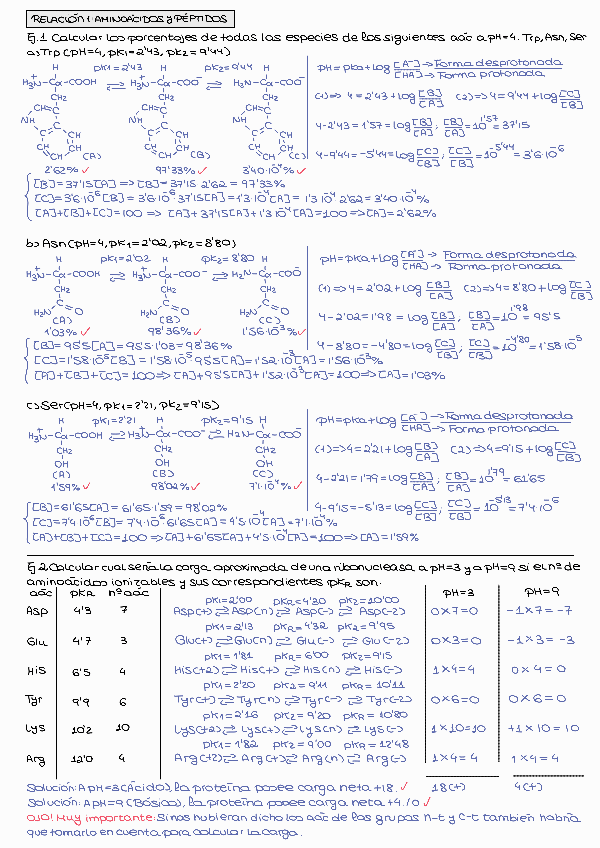 RELACIÓN 1: AMINOÁCIDOS y PÉPTIDOS
Ej.1 Calcular los porcentajes de todas las especies de los siguientes aác a pH=4. Trp, Asn, Ser
a) Trp (pH=4, pK1=2'43, pK2=9'44)
pK1=2'43 pK2=9'44
H H H
H3N+-Cα-COOH ⇌ H3N+-Cα-COO- ⇌ H2N-Cα-COO-
CH2 CH2 CH2
(A) (B) (C)
2'62% ✓ 97'33% ✓ 3'40·10^-4% ✓
pH=pKa+log [A-]/[HA] → Forma desprotonada / → Forma protonada
(1)⇒ 4=2'43+log [B]/[A] (2)⇒ 4=9'44+log [C]/[B]
4-2'43=1'57=log [B]/[A]; [B]/[A]=10^1'57=37'15
4-9'44=-5'44=log [C]/[B]; [C]/[B]=10^-5'44=3'6·10^-6
[B]=37'15[A] ⇒ [B]=37'15·2'62=97'33%
[C]=3'6·10^-6[B]=3'6·10^-6·37'15[A]=1'3·10^-4[A]=1'3·10^-4·2'62=3'40·10^-4%
[A]+[B]+[C]=100 ⇒ [A]+37'15[A]+1'3·10^-4[A]=100 ⇒ [A]=2'62%
b) Asn (pH=4, pK1=2'02, pK2=8'80)
H pK1=2'02 H pK2=8'80 H
H3N+-Cα-COOH ⇌ H3N+-Cα-COO- ⇌ H2N-Cα-COO-
CH2 CH2 CH2
H2N C=O H2N C=O H2N C=O
(A) (B) (C)
1'03% ✓ 98'36% ✓ 1'56·10^-3% ✓
pH=pKa+log [A-]/[HA] → Forma desprotonada / → Forma protonada
(1)⇒ 4=2'02+log [B]/[A] (2)⇒ 4=8'80+log [C]/[B]
4-2'02=1'98=log [B]/[A]; [B]/[A]=10^1'98=95'5
4-8'80=-4'80=log [C]/[B]; [C]/[B]=10^-4'80=1'58·10^-5
[B]=95'5[A]=95'5·1'03=98'36%
[C]=1'58·10^-5[B]=1'58·10^-5·95'5[A]=1'52·10^-3[A]=1'56·10^-3%
[A]+[B]+[C]=100 ⇒ [A]+95'5[A]+1'52·10^-3[A]=100 ⇒ [A]=1'03%
c) Ser (pH=4, pK1=2'21, pK2=9'15)
H pK1=2'21 H pK2=9'15 H
H3N+-Cα-COOH ⇌ H3N+-Cα-COO- ⇌ H2N-Cα-COO-
CH2 CH2 CH2
OH OH OH
(A) (B) (C)
1'59% ✓ 98'02% ✓ 7'1·10^-4% ✓
pH=pKa+log [A-]/[HA] → Forma desprotonada / → Forma protonada
(1)⇒ 4=2'21+log [B]/[A] (2)⇒ 4=9'15+log [C]/[B]
4-2'21=1'79=log [B]/[A]; [B]/[A]=10^1'79=61'65
4-9'15=-5'13=log [C]/[B]; [C]/[B]=10^-5'13=7'4·10^-6
[B]=61'65[A]=61'65·1'59=98'02%
[C]=7'4·10^-6[B]=7'4·10^-6·61'65[A]=4'5·10^-4[A]=7'1·10^-4%
[A]+[B]+[C]=100 ⇒ [A]+61'65[A]+4'5·10^-4[A]=100 ⇒ [A]=1'59%
Ej 2. Calcular cual seria la carga aproximada de una ribonucleasa a pH=3 y a pH=9 si el nº de
aminoácidos ionizables y sus correspondientes pKR son.
aác pKR nº aác pH=3 pH=9
pK1=2'00 pKR=4'30 pK2=10'00
Asp 4'3 7 Asp(+) ⇌ Asp(n) ⇌ Asp(-) ⇌ Asp(-2) 0x7=0 -1x7=-7
pK1=2'13 pKR=4'32 pK2=9'95
Glu 4'7 3 Glu(+) ⇌ Glu(n) ⇌ Glu(-) ⇌ Glu(-2) 0x3=0 -1x3=-3
pK1=1'81 pKR=6'00 pK2=9'15
His 6'5 4 His(+2) ⇌ His(+) ⇌ His(n) ⇌ His(-) 1x4=4 0x4=0
pK1=2'20 pK2=9'11 pKR=10'11
Tyr 9'9 6 Tyr(+) ⇌ Tyr(n) ⇌ Tyr(-) ⇌ Tyr(-2) 0x6=0 0x6=0
pK1=2'16 pK2=9'20 pKR=10'80
Lys 10'2 10 Lys(+2) ⇌ Lys(+) ⇌ Lys(n) ⇌ Lys(-) 1x10=10 +1x10=10
pK1=1'82 pK2=9'00 pKR=12'48
Arg 12'0 4 Arg(+2) ⇌ Arg(+) ⇌ Arg(n) ⇌ Arg(-) 1x4=4 1x4=4
18(+) 4(+)
Solución: A pH=3 (Ácido), la proteína posee carga neta +18. ✓
Solución: A pH=9 (Básico), la proteína posee carga neta +4./0 ✓
OJO! Muy importante: Si nos hubieran dicho los aác de los grupos N-t y C-t también habría
que tomarlo en cuenta para calcular la carga.